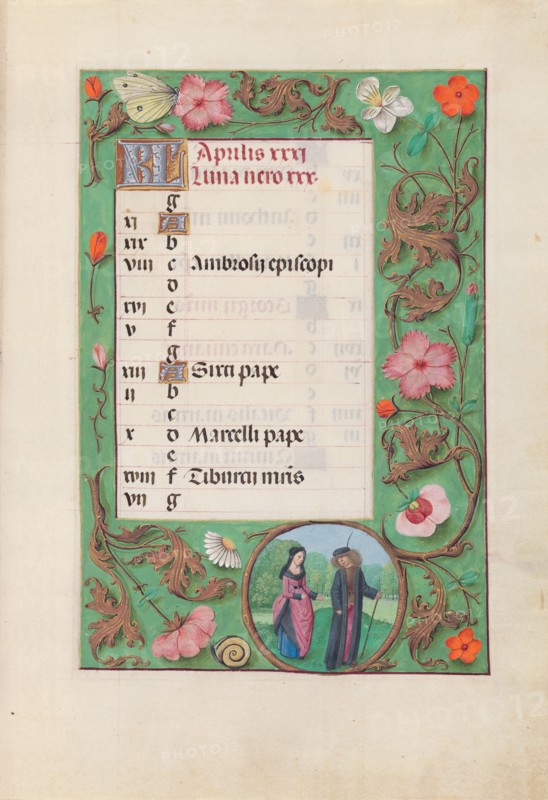 KL Aprilis xxxj
Luna uero xxx.
g
xj A
xix b
viii c Ambrosij episcopi
d
xvj e
v f
g
xiii A Sixti pape
ij b
c
x d Marcelli pape
e
xviii f Tiburcij mris
vii g
PHOTO12